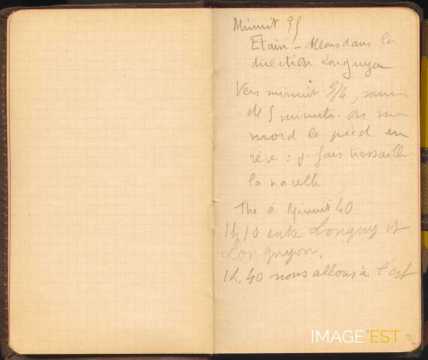 Minuit 25
Etain - Allons dans la
direction Longuyon
Vers minuit 3/4, somme
de 5 minutes. On me
mord le pied en
rêve : je fais tressaillir
la nacelle
Thé à Minuit 40
1h,10 entre Longwy et
Longuyon.
1h,40 nous allons à l'est
IMAGE'EST